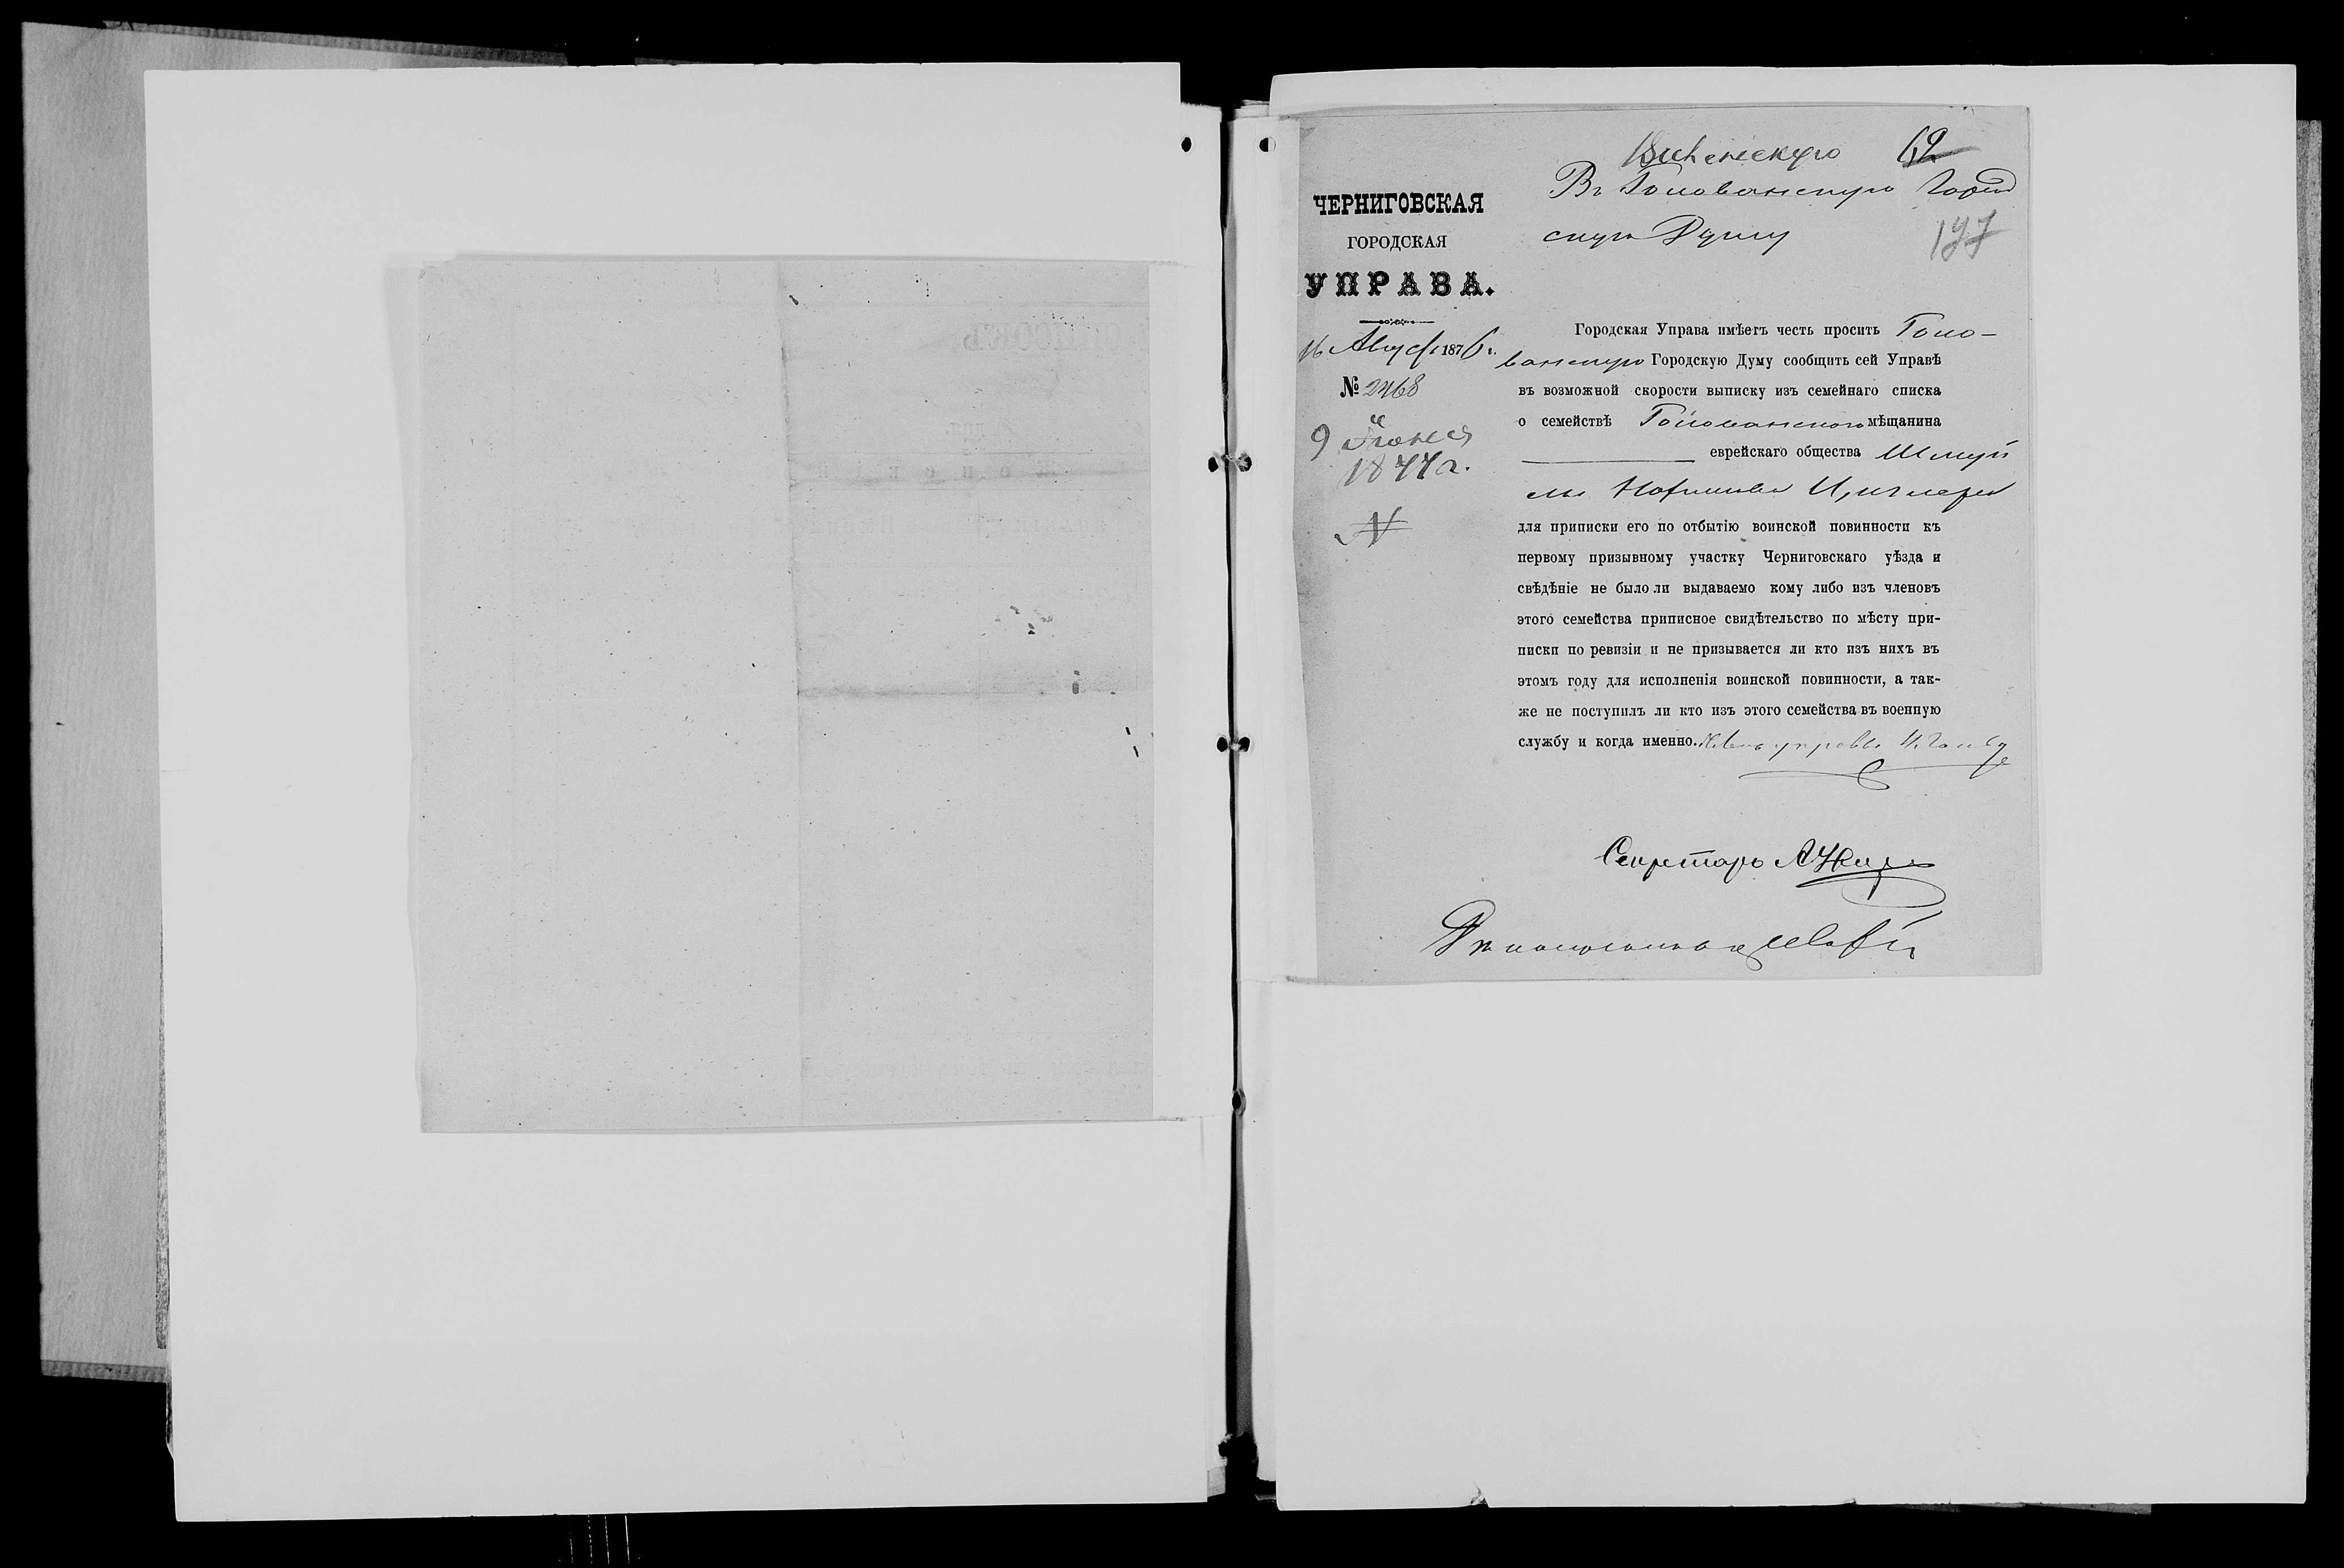 69
Въ Голованскую Город
скую Думу
197
ЧЕРНИГОВСКАЯ
ГОРОДСКАЯ
УПРАВА.
16 Август 1876 г.
№ 2468
9
1877 г.
Городская Управа имѣетъ честь просить Голо-
ванскую Городскую Думу сообщить сей Управѣ
въ возможной скорости выписку изъ семейнаго списка
о семействѣ Голованскаго мѣщанина
еврейскаго общества Шмуй
для приписки его по отбытію воинской повинности къ
первому призывному участку Черниговскаго уѣзда и
свѣдѣніе не было ли выдаваемо кому либо изъ членовъ
этого семейства приписное свидѣтельство по мѣсту при-
писки по ревизіи и не призывается ли кто изъ нихъ въ
этомъ году для исполненія воинской повинности, а так-
же не поступилъ ли кто изъ этого семейства въ военную
службу и когда именно. Членъ управы
Секретарь